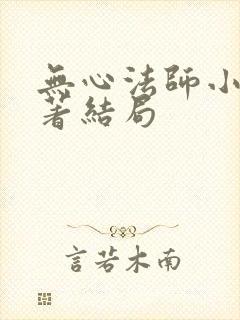 無心法師小
著結局
言若木南